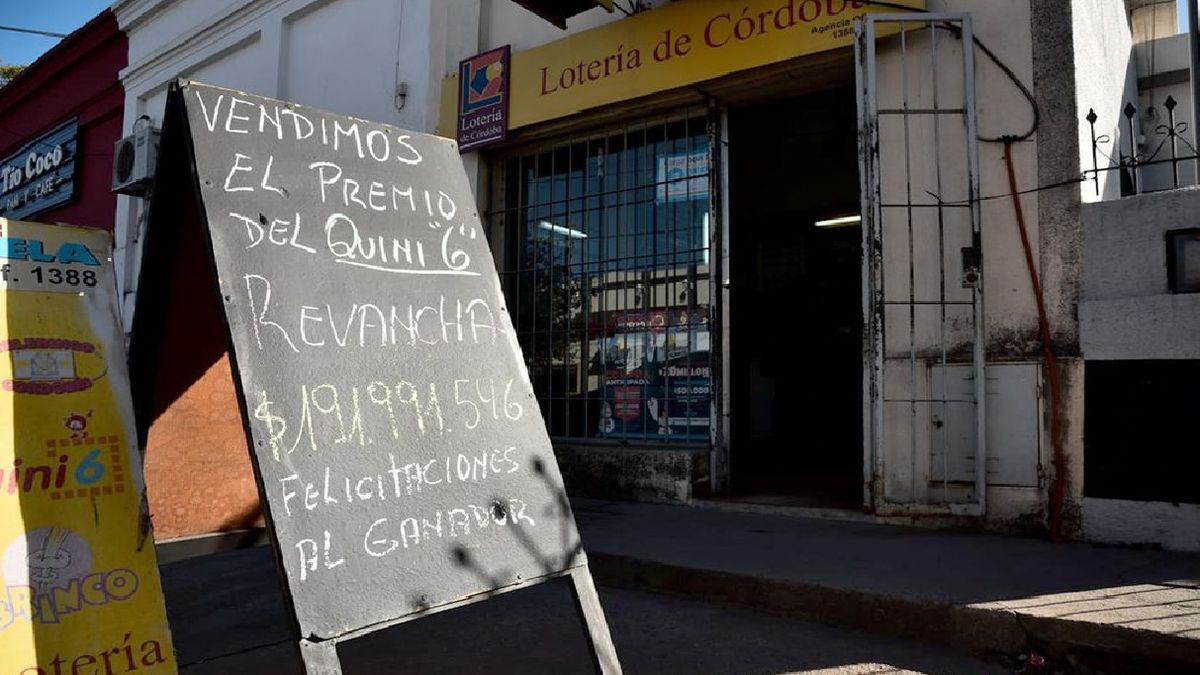 VENDIMOS
EL PREMIO
DEL QUINI "6"
REVANCHA
$191.991.546
FELICITACIONES
AL GANADOR
Lotería de Córdoba
Agencia
1388
Lotería
de Córdoba
Tío Coco
PAN Y CAFÉ
ELA
f. 1388
uini 6
BRINCO
otería
ANTICIPADA